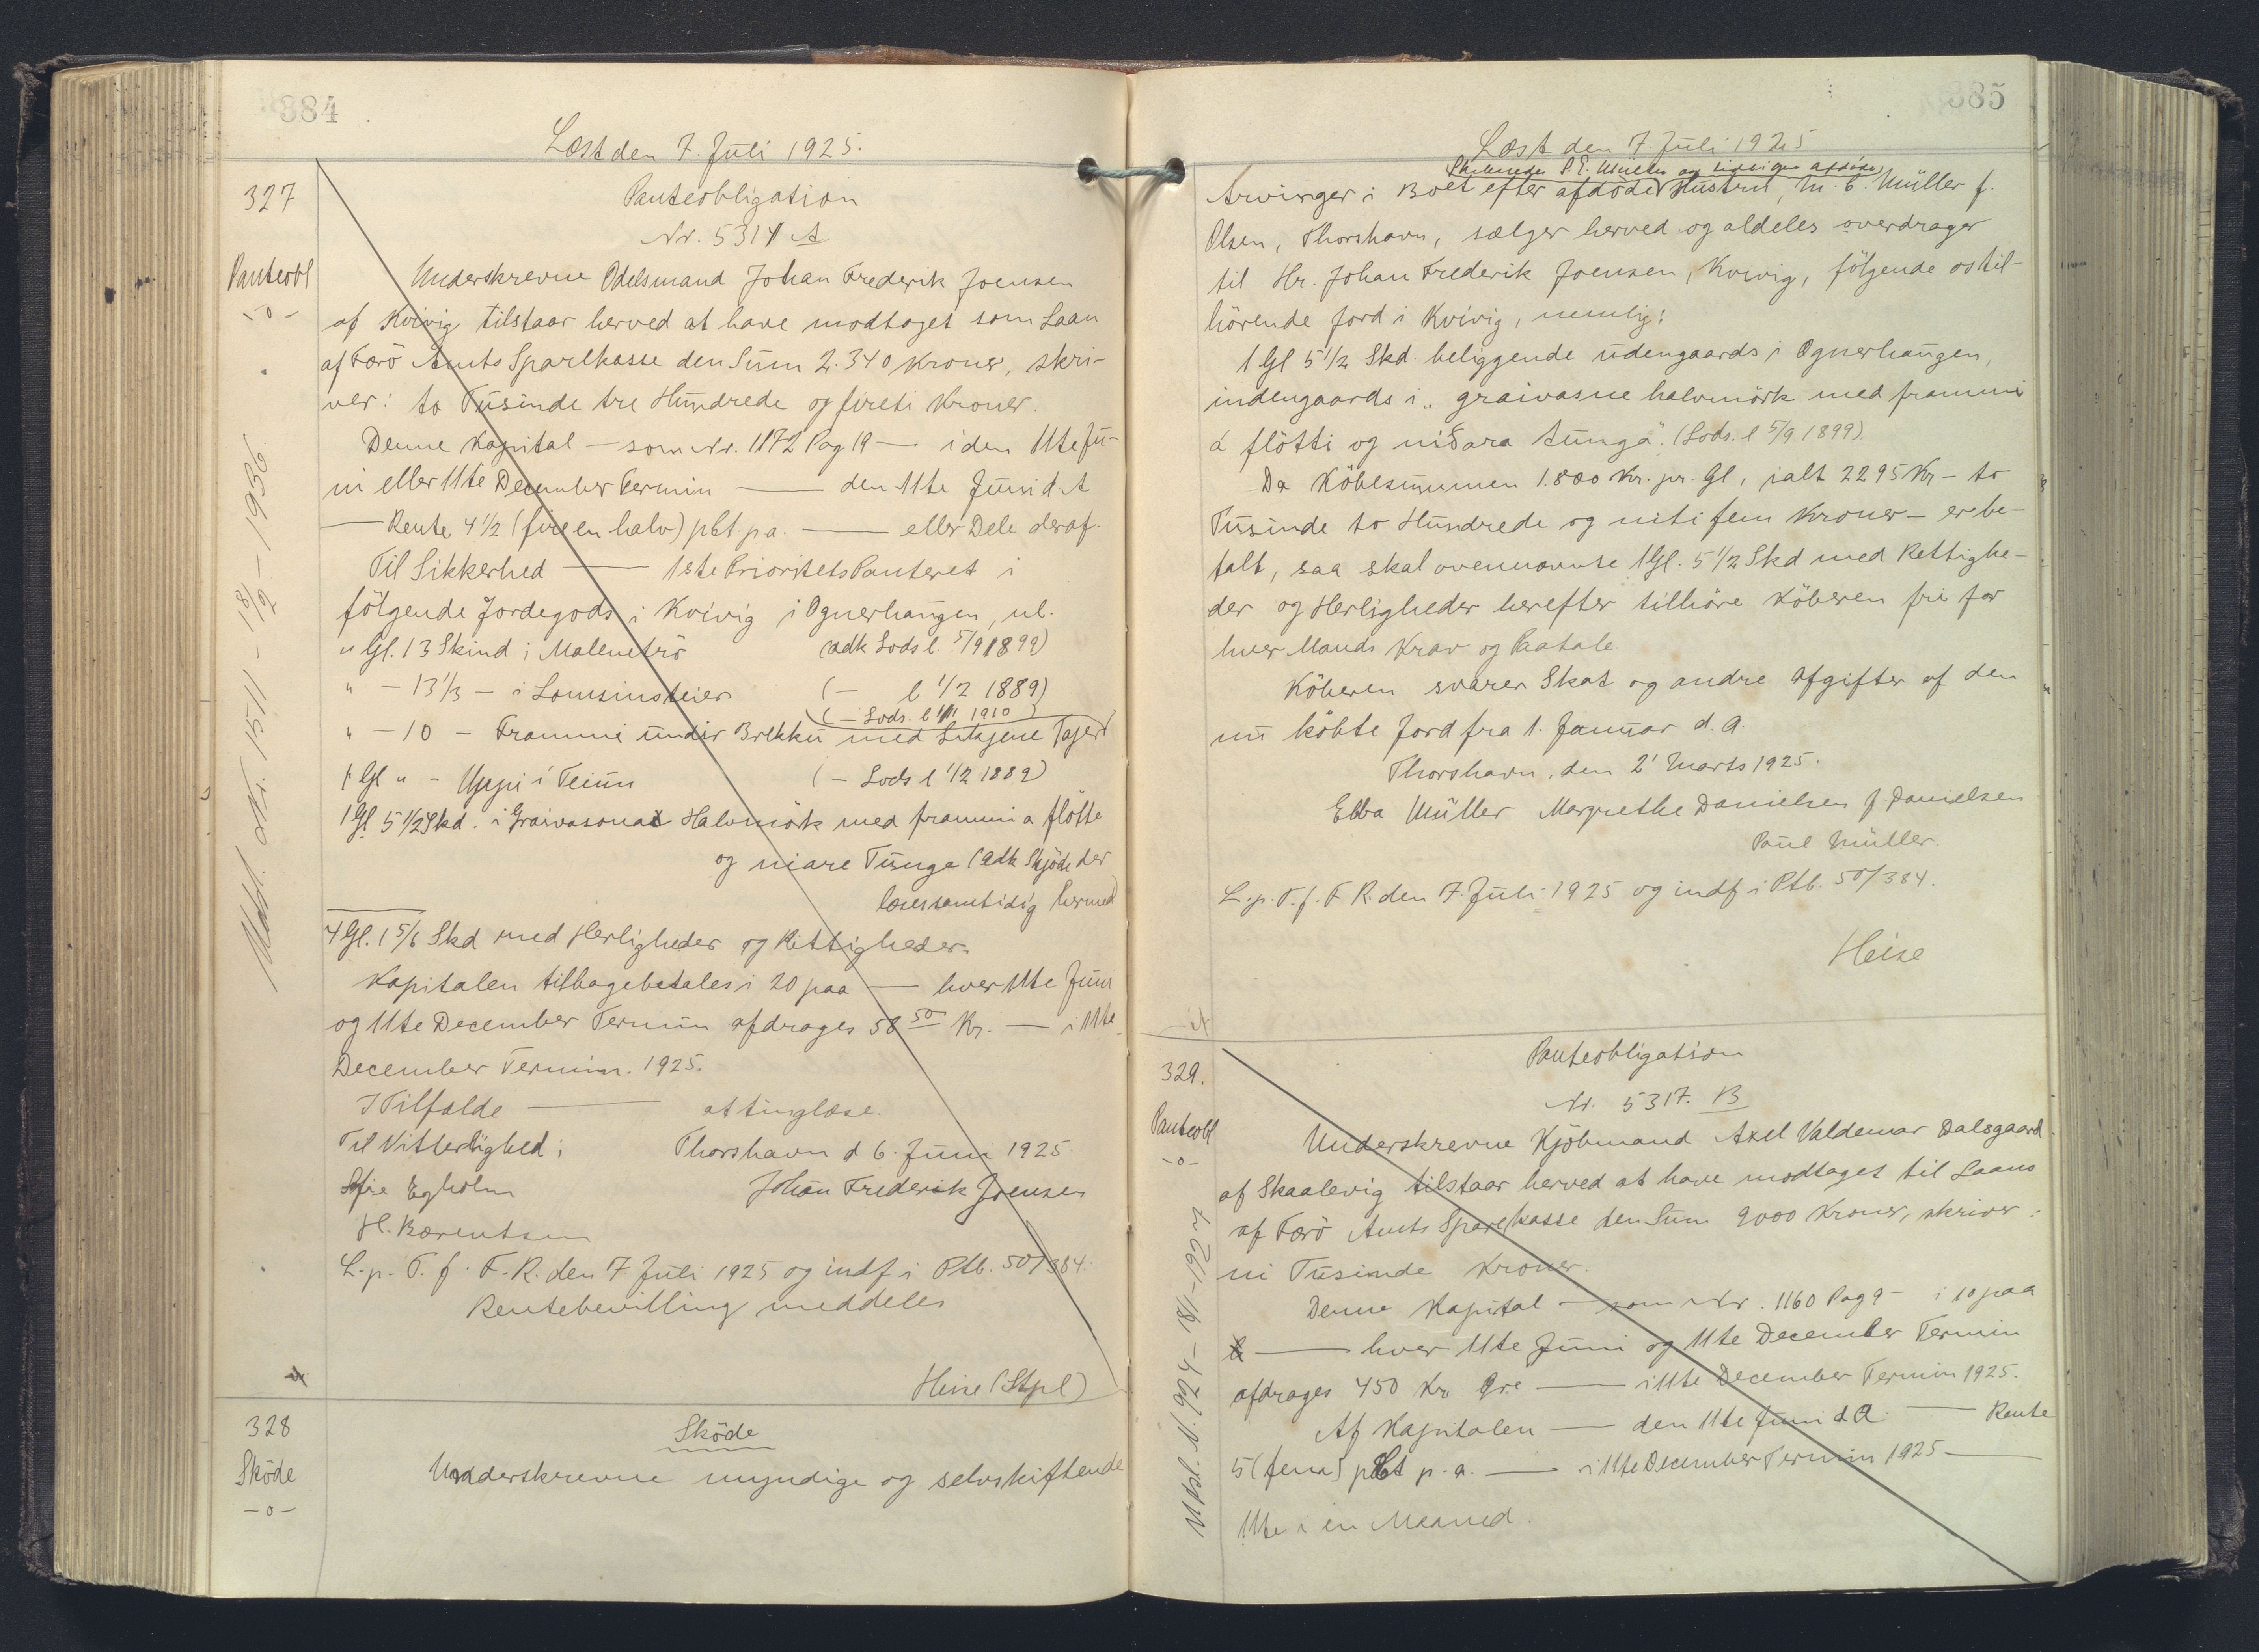 384
Læst den 7. Juli 1925.
327
Panteobl
-o-
Udsl. Nr. 1511 - 18/9 - 1936.
Panteobligation
Nr. 5314 A
Underskrevne Odelsmand Johan Frederik Joensen
af Kvivig tilstaar herved at have modtaget som Laan
af Færö Amts Sparekasse den Sum 2.340 Kroner, skri-
ver: to Tusinde tre Hundrede og fireti Kroner.
Denne Kapital — som Nr. 1172 Pag 19 — i den 11te Ju-
ni eller 11te December Termin — den 11te Juni d. A
— Rente 4 1/2 (fire en halv) pCt p a. — eller Dele deraf.
Til Sikkerhed — 1ste Prioritets Panteret i
fölgende Jordegods i Kvivig i Ognerhaugen, nl.
" Gl. 13 Skind i Malenetrö (adk Lods l. 5/9 1899)
" - 13 1/3 - i Lomsinsteier (— l 1/2 1889)
(— Lods. l 1/11 1910)
" - 10 - Frammi undir Brekku med Tajer
1 Gl " - Uppi i Teiun (— Lods l 1/2 1889)
1 Gl 5 1/2 Skd. i Graivasona Halvmörk med frammi a flötte
og niare Tunge (Adk Skjöde der
læses samtidig hermed)
4 Gl. 1 5/6 Skd med Herligheder og Rettigheder.
Kapitalen tilbagebetales i 20 paa — hver 11te Juni
og 11te December Termin afdrages 58 50 Kr. — i 11te
December Termin. 1925.
I Tilfælde — at tinglæse.
Til Vitterlighed: Thorshavn d 6. Juni 1925.
Sofie Egholm Johan Frederik Joensen
H. Bærentsen
L. p. T. f. F. R. den 7 Juli 1925 og indf i Ptb. 50/384.
Rentebevilling meddeles
Heise (Stpl)
328
Sköde
-o-
Sköde
Underskrevne myndige og selvskiftende
385
Læst den 7. Juli 1925
P. E. Müller og tidligere afdöde
Arvinger i Boet efter afdöde Hustru, M. C. Müller f.
Olsen, Thorshavn, sælger herved og aldeles overdrager
til Hr. Johan Frederik Joensen, Kvivig, fölgende os til-
hörende Jord i Kvivig, nemlig:
1 Gl 5 1/2 Skd. beliggende udengaards i Ognerhaugen,
indengaards i „graivasne halvmörk med frammi
á flötti og niðara tunga". (Lods. l 5/9 1899).
Da Köbesummen 1.800 Kr. pr. Gl, ialt 2295 Kr - to
Tusinde to Hundrede og niti fem Kroner - er be-
talt, saa skal ovennævnte 1 Gl. 5 1/2 Skd med Rettighe-
der og Herligheder herefter tilhöre Köberen fri for
hver Mands Krav og Paatale.
Köberen svarer Skat og andre Afgifter af den
nu köbte Jord fra 1. Januar d. A.
Thorshavn, den 2' Marts 1925.
Ebba Müller Margrethe Danielsen J Danielsen
Poul Müller.
L. p. T. f. F. R. den 7. Juli 1925 og indf i Ptb. 50/384.
Heise
329.
Panteobl
-o-
Udsl. N. 924 - 18/1 - 1927
Panteobligation
Nr. 5317. B
Underskrevne Kjöbmand Axel Valdemar Dalsgaard
af Skaalevig tilstaar herved at have modtaget til Laans
af Færö Amts Sparekasse den Sum 9000 Kroner, skriver:
ni Tusinde Kroner.
Denne Kapital — som Nr. 1160 Pag 9 — i 10 paa
— hver 11te Juni og 11te December Termin
afdrages 450 Kr Öre — i 11te December Termin 1925.
Af Kapitalen — den 11te Juni d A — Rente
5 (fem) pCt p. a. — i 11te December Termin 1925 —
11te i en Maaned.